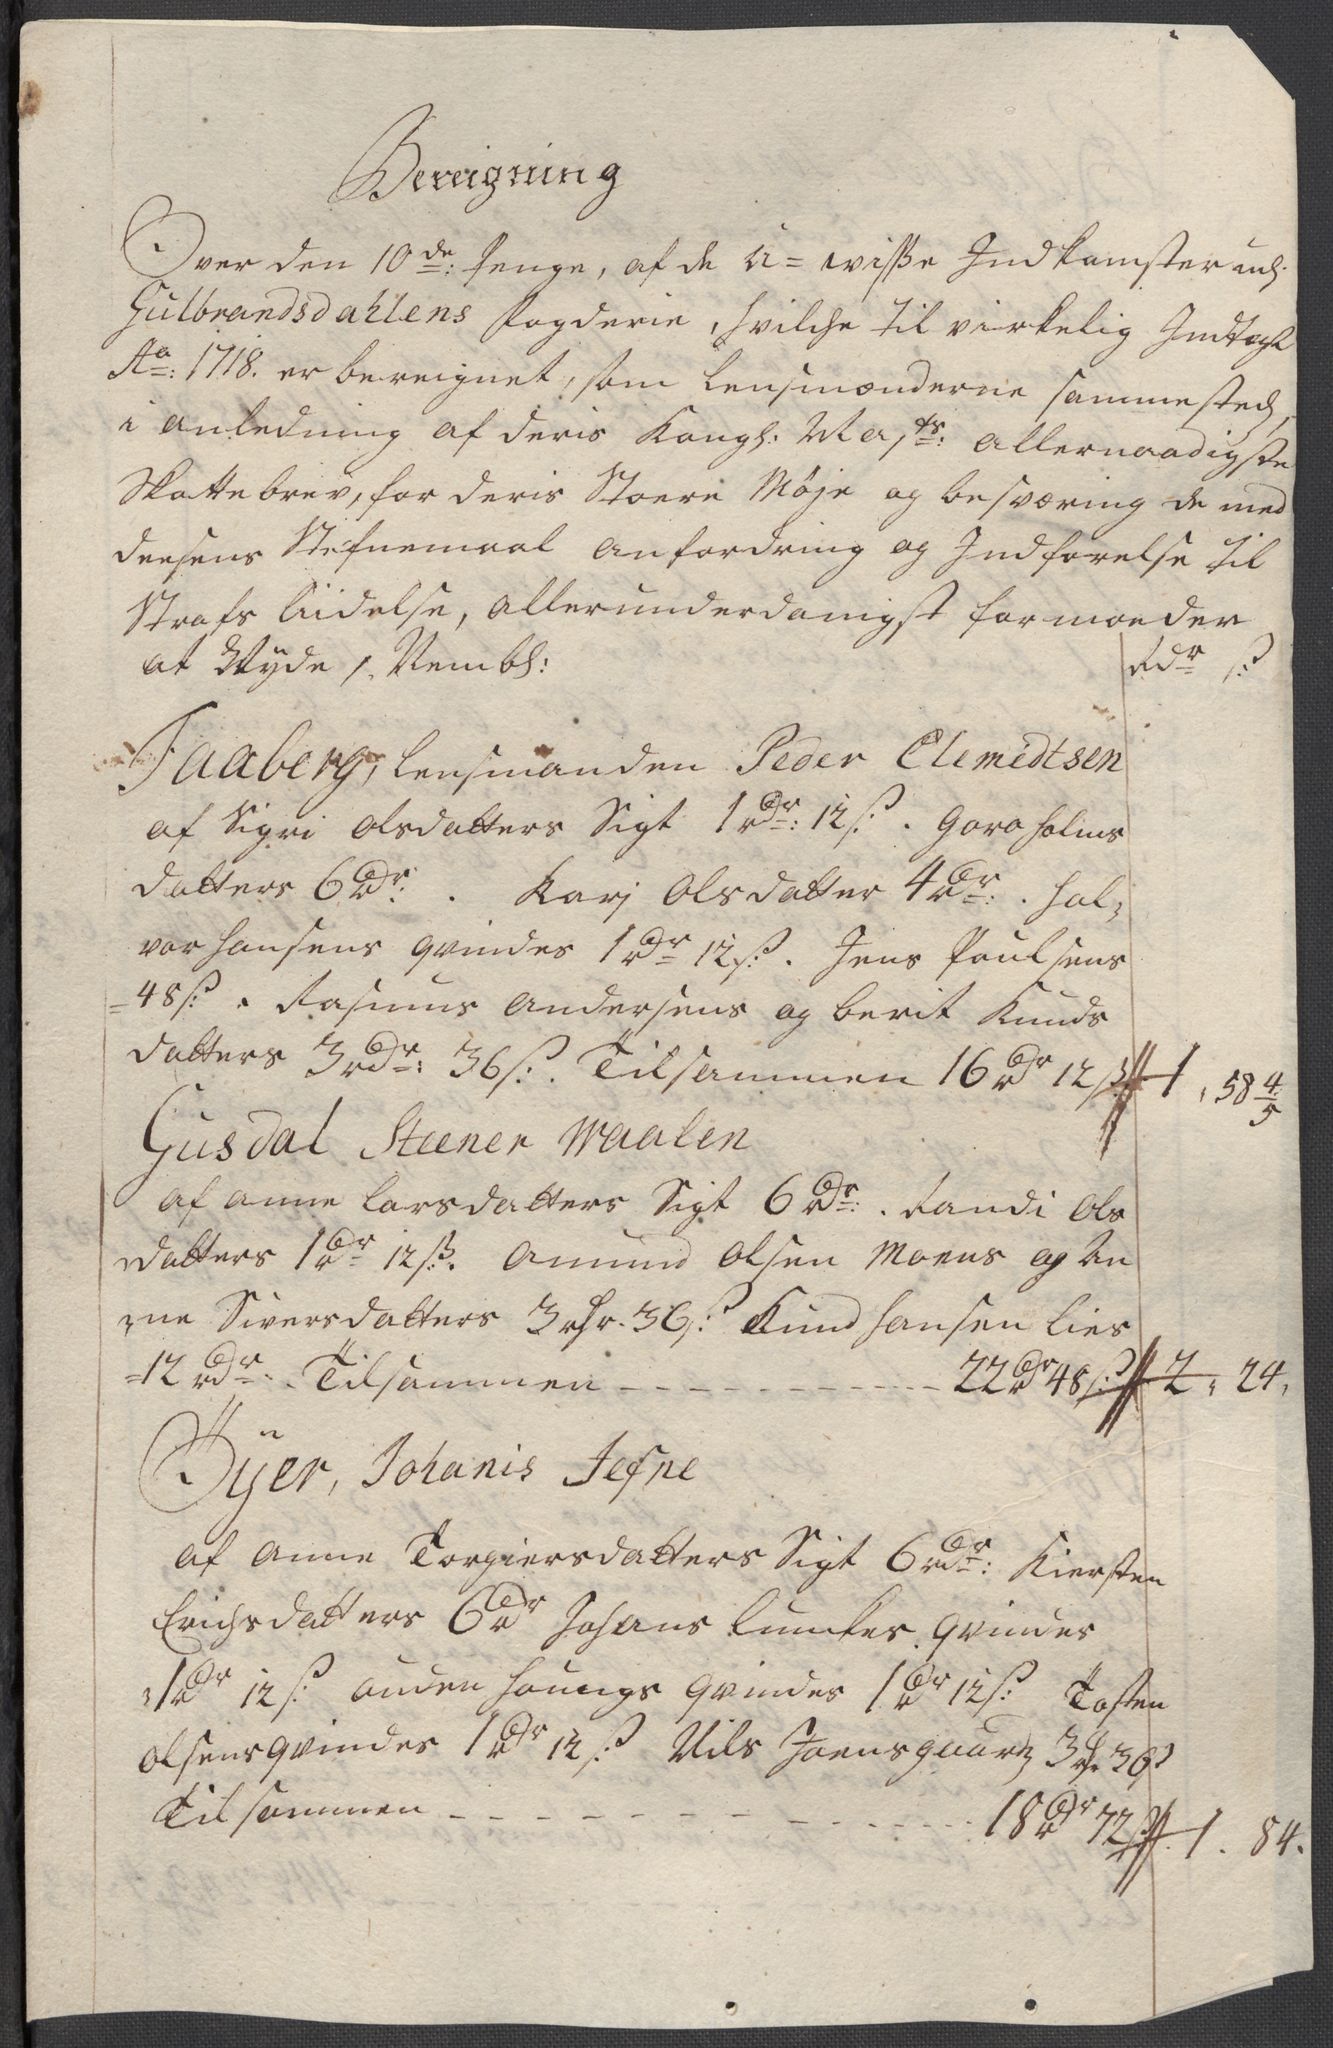 Bereigning
Over den 10de: penge, af de U= wisse Indkomster udj
Gulbrandsdahlens fogderie, hvilche til virkelig Indtegt
Ao: 1718. er bereignet, som lensmænderne sammestedz,
i anledning af deris Kongl: Mayts: allernaadigste
Skattebrev, for deris Stoere Møje og besværing de med
deesens Stefnemaal anfordring og Indførelse til
Strafs lidelse, allerunderdanigst formoeder
at Nyde /: Nembl:
Rdr ß
Faaberg, lensmanden Peder Clemedtsen
af Sigri olsdatters Sigt 1 rdr: 12 ß. Goro holms
datters 6 rdr. Karj Olsdatter 4 rdr:. hal,
vor hansens qvindes 1 rdr 12 ß. Jens Poulsens
=48 ß. Rasmus Andersens og berit Knuds
datters 3 rdr: 36 ß. Tilsammen 16 rdr 12 ß 1, 58 4/5
Gusdal Steener Waalen
af anne larsdatters Sigt 6 rdr:. Randi Ols
datters 1 rdr 12 ß. Amund olsen Moens og An
,ne Siversdatters 3 rdr. 36 ß Knud hansen lies
=12 rdr. Tilsammen 22 rdr 48 ß 2, 24,
Öyer, Johanis Jefne
af Anne Torgiersdatters Sigt 6 rdr: Kiersten
Erichsdatters 6 rdr Johans lunkes qvindes
,1 rdr 12 ß ouden hougs qvindes 1 rdr 12 ß Tosten
olsens qvindes 1 rdr 12 ß Nils Joensgaard 3 rdr 36 ß
Tilsammen 18 rdr 72 ß 1. 84.